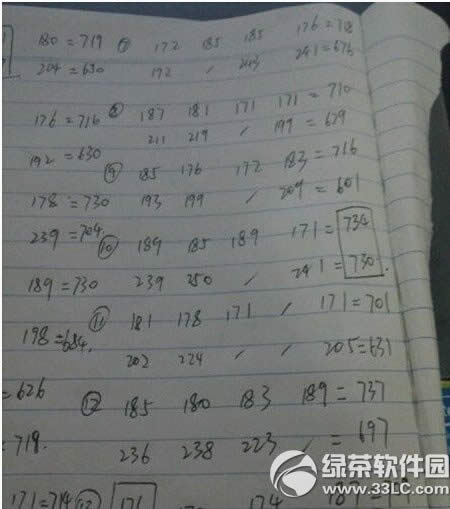 180=719 ⑦ 172 185 185 176=718
204=630 192 / 243 241=676
176=716 ⑧ 187 181 171 171=710
192=630 211 219 / 199=629
⑨ 185 176 172 183=716
178=730 193 199 / 209=601
239=704 ⑩ 189 185 189 171=734
189=730 239 250 / 241=730
⑪ 181 178 171 / 171=701
198=684 202 224 / / 205=631
=626 ⑫ 185 180 183 189=737
=718 236 238 223 / =697
171=714 171 174 187
绿茶软件园
www.33LC.com